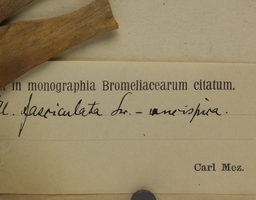 in monographia Bromeliacearum citatum.
fasciculata Sw. –
Carl Mez.